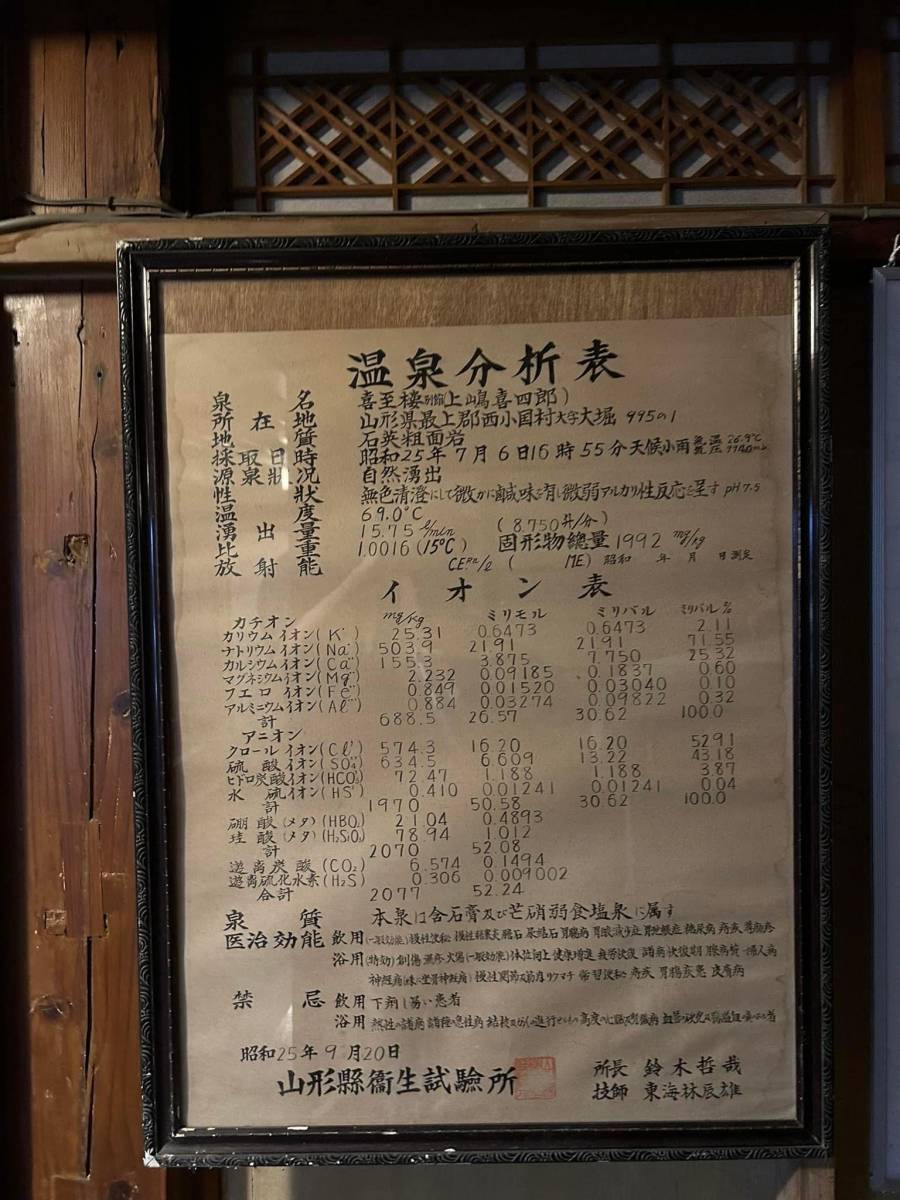 温泉分析表
泉名 喜至樓別館(上嶋喜四郎)
所在地 山形県最上郡西小国村大字大堀 995の1
地質 石英粗面岩
採取日時 昭和25年7月6日16時55分 天候小雨 気温 26.9°C 気圧
源泉狀況 自然湧出
性狀 無色清澄にして微かに鹹味を有し微弱アルカリ性反応を呈す pH7.5
温度 69.0°C
湧出量 15.75 ℓ/min (8.750升/分)
比重 1.0016 (15°C) 固形物總量 1992 mg/kg
放射能 ( ME) 昭和 年 月 日測定
イオン表
カチオン mg/kg ミリモル ミリバル ミリバル%
カリウムイオン(K˙) 25.31 0.6473 0.6473 2.11
ナトリウムイオン(Na˙) 503.9 21.91 21.91 71.55
カルシウムイオン(Ca˙˙) 155.3 3.875 7.750 25.32
マグネシウムイオン(Mg˙˙) 2.232 0.09185 0.1837 0.60
フエロイオン(Fe˙˙) 0.849 0.01520 0.03040 0.10
アルミニウムイオン(Al˙˙˙) 0.884 0.03274 0.09822 0.32
計 688.5 26.57 30.62 100.0
アニオン
クロールイオン(Cl') 574.3 16.20 16.20 52.91
硫酸イオン(SO₄'') 634.5 6.609 13.22 43.18
ヒドロ炭酸イオン(HCO₃') 72.47 1.188 1.188 3.87
水硫イオン(HS') 0.410 0.01241 0.01241 0.04
計 1970 50.58 30.62 100.0
硼酸(メタ)(HBO₂) 21.04 0.4893
珪酸(メタ)(H₂SiO₃) 78.94 1.012
計 2070 52.08
遊離炭酸(CO₂) 6.574 0.1494
遊離硫化水素(H₂S) 0.306 0.009002
合計 2077 52.24
泉質 本泉は含石膏及び芒硝弱食塩泉に属す
医治効能 飲用(一般効能)慢性便秘 慢性胆嚢炎 膽石 尿酸石 胃腸病 胃酸減少症 糖尿病 痔疾
浴用(特効)創傷 湿疹 火傷(一般効果)体位向上 健康増進 疲労快復 諸病快復期 婦人病
神経痛(殊に坐骨神経痛)慢性関節及筋肉リウマチ 常習便秘 痔疾 胃腸疾患 皮膚病
禁忌 飲用 下痢し易い患者
浴用 熱性の諸病 諸種の急性病
昭和25年9月20日
山形縣衞生試驗所
所長 鈴木哲哉
技師 東海林辰雄